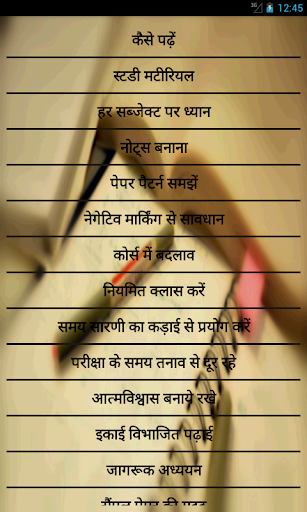 3G 12:45
कैसे पढ़ें
स्टडी मटीरियल
हर सब्जेक्ट पर ध्यान
नोट्स बनाना
पेपर पैटर्न समझें
नेगेटिव मार्किंग से सावधान
कोर्स में बदलाव
नियमित क्लास करें
समय सारणी का कड़ाई से प्रयोग करें
परीक्षा के समय तनाव से दूर रहे
आत्मविश्वास बनाये रखे
इकाई विभाजित पढ़ाई
जागरूक अध्ययन
सैंपल पेपर की मदद